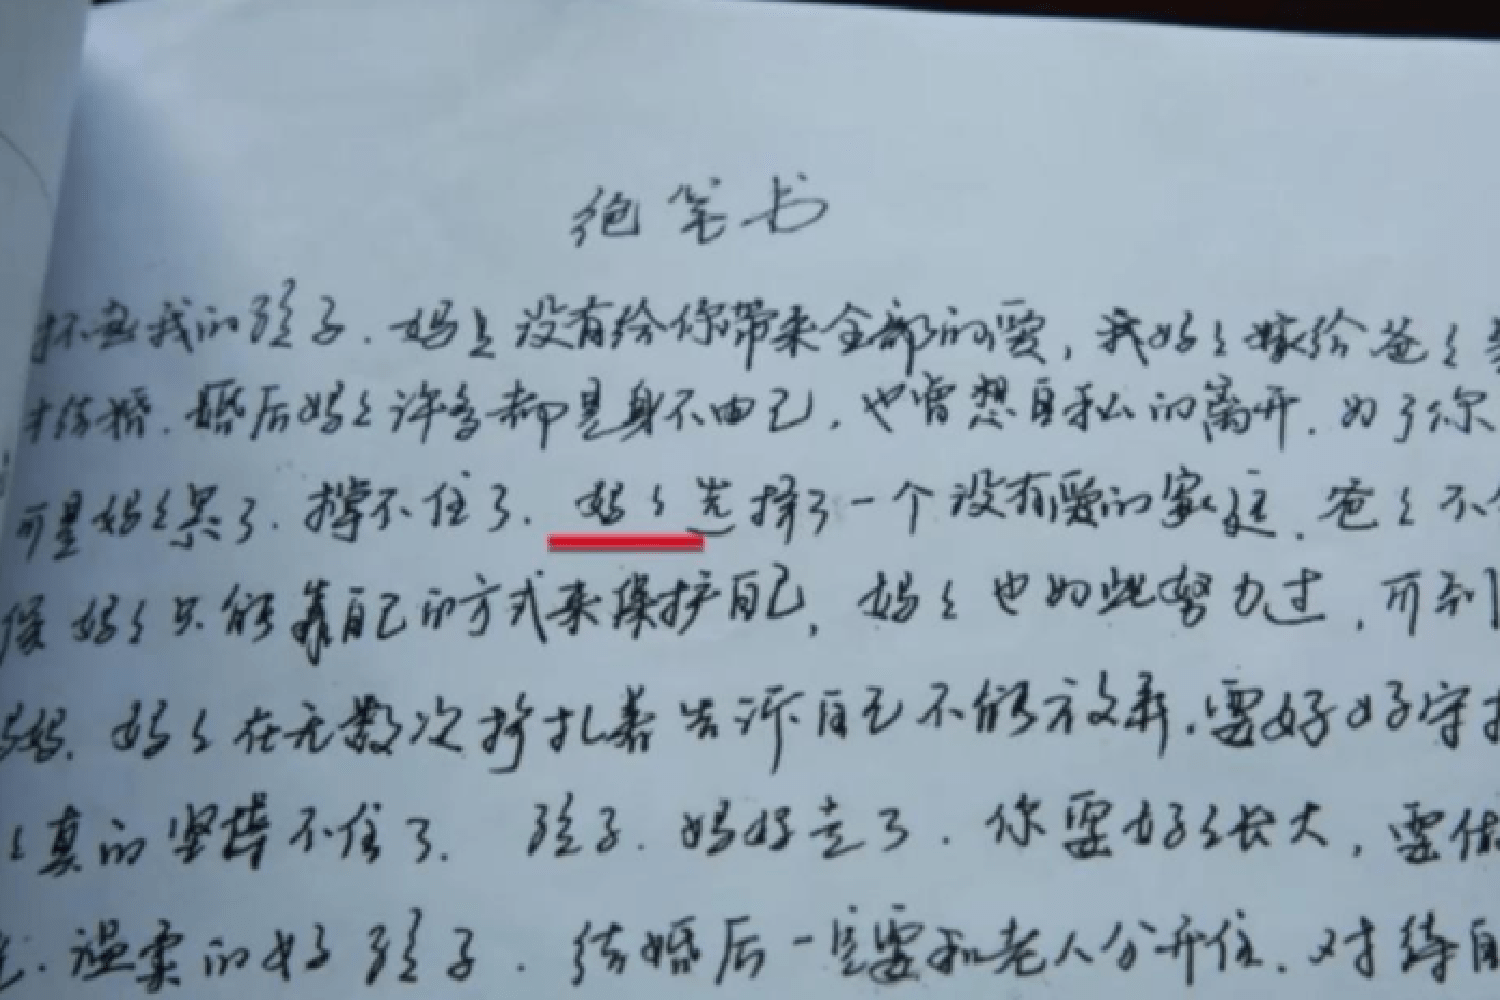 绝笔书
怀念我的孩子.妈妈没有给你带来全部的爱,我妈妈嫁给爸爸
才结婚.婚后妈妈许多都是身不由己,也曾想自私的离开.为了你
可是妈妈累了.撑不住了.妈妈选择了一个没有爱的家庭.爸爸不
保 妈妈只能靠自己的方式来保护自己,妈妈也如此努力过,可到
妈妈在无数次挣扎着告诉自己不能放弃.要好好守
真的坚撑不住了.孩子.妈妈走了.你要好好长大,要做
温柔的好孩子.结婚后一定要和老人分开住.对待自